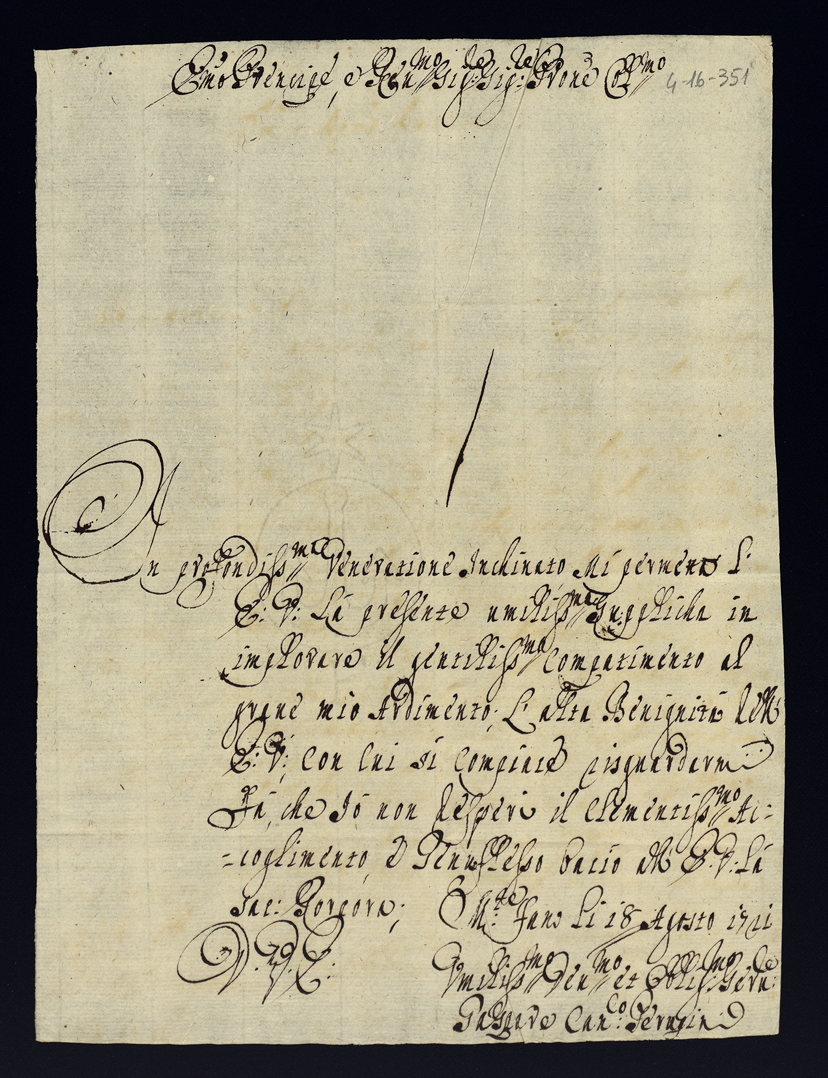 Emo Prencipe, e Rev:mo Sig:re Sig:re Prone Col:mo
4-16-351
In profondiss:ma Veneratione Inchinato, Mi permetta L'
E: V: La presente umiliss:ma Supplicha in
implorare il gentiliss:mo Compatimento al
grave mio Ardimento; L'alta Benignità dell'
E: V:, con cui si Compiace risguardarmi
Fà, che Io non desperi il clementiss:mo Ac-
-coglimento, e Genuflesso bacio all' E: V: La
Sac: Porpora; Fano Li 18 Agosto 1721
D: V: E:
Umiliss:mo Dev:mo et Oblig:mo Serv:e
Gaspare Can:co